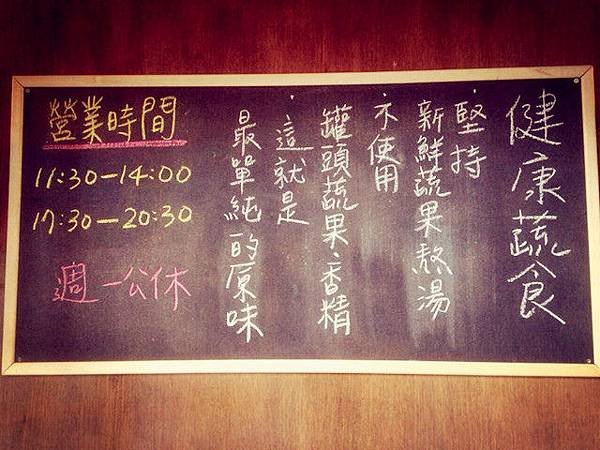 健康蔬食
堅持
新鮮蔬果熬湯
不使用
罐頭蔬果、香精
這就是
最單純的原味
營業時間
11:30-14:00
17:30-20:30
週一公休